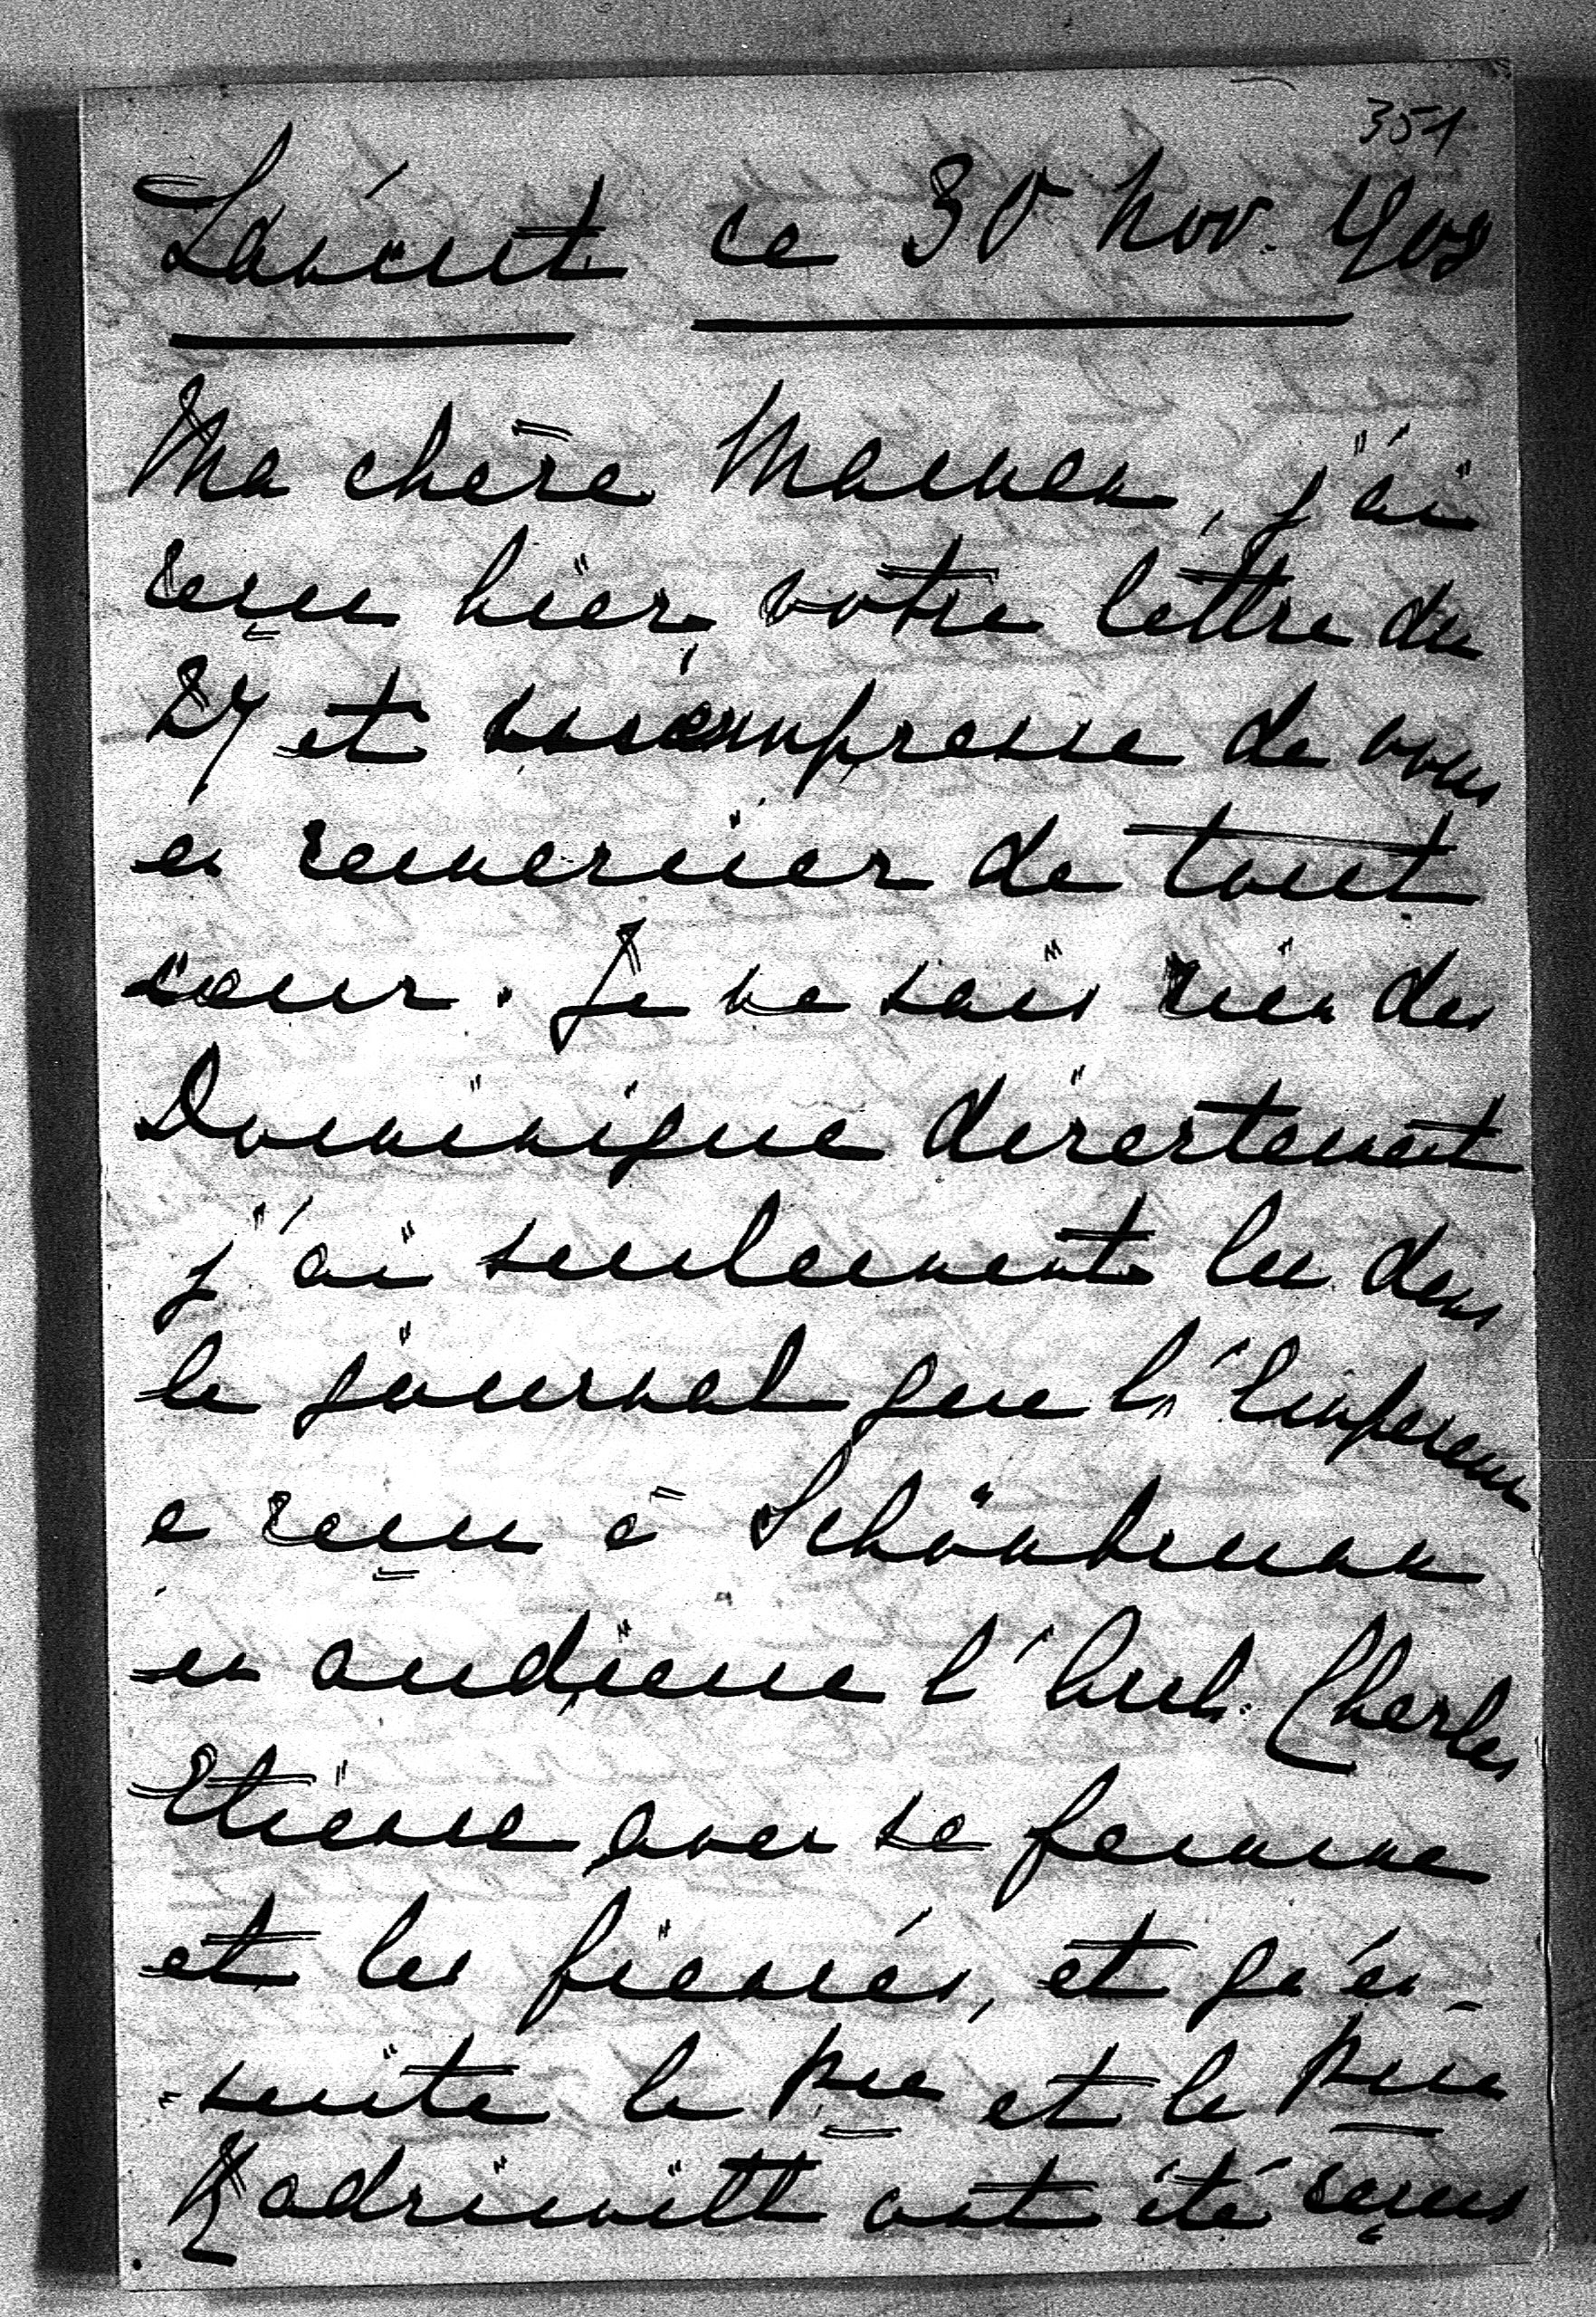 351
Lancut ce 30 Nov. 1908
Ma chère Maman, j'ai
reçu hier votre lettre du
27 et m'empresse de vous
en remercier de tout
cœur. Je ne sais rien des
Dominique directement
j'ai seulement lu dans
le journal que l'Empereur
a reçu à Schönbrunn
en audience l'Arch. Charles
Etienne avec sa femme
et les fiancés, et qu'en-
-suite le Pce et la Pcesse
Radziwill ont été reçus